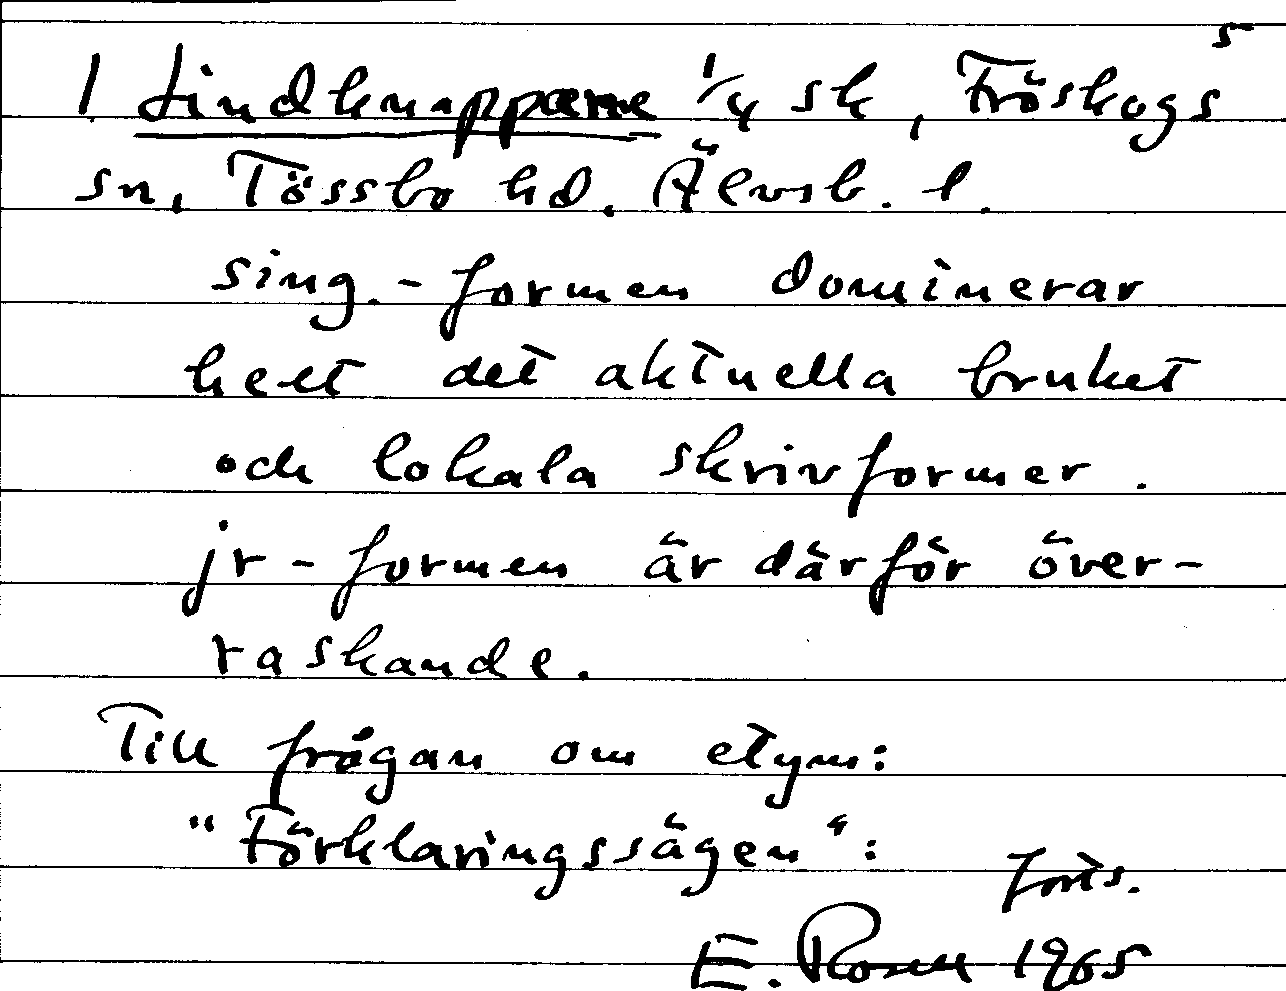 5
1. Lindknapparne 1/4 sk, Fröskogs
sn, Tössbo hd. Älvsb. l.
sing.-formen dominerar
helt det aktuella bruket
och lokala skrivformer.
jr-formen är därför över-
raskande.
Till frågan om etym:
"Förklaringssägen":
forts.
E. Rosell 1965